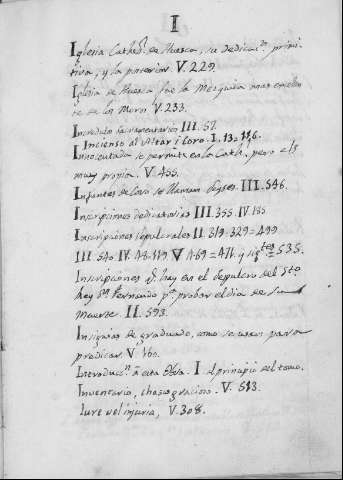 I
Iglesia Cathed.l de Huesca, su dedicac.n primi-
tiva, y la posterior. V. 229.
Iglesia de Huesca fue la Mezquita mas excelen-
te de los Moros V. 233.
Incredulo sacramentario III. 57.
Incienso al Altar i Coro. I. 13=
Innocentada se permite en la Cath.l pero es
muy propia. V. 455.
Infantes de Coro se llaman III. 546.
Inscripciones dedicatorias III. 355. IV. 185
Inscripciones sepulcrales II. 319. 329= 499
III. 540 IV. 48. 119 V. 469= 471. y sig.tes = 535.
Inscripciones q. hay en el sepulcro del S.to
Rey D.n Fernando p.a probar el dia de su
muerte. II. 593.
Insignias de graduado, como se usen para
predicar. V. 160.
Introducc.n a esta Obra. I al principio del tomo.
Inventario, chasco gracioso. V. 513.
Iure vel injuria, V. 308.